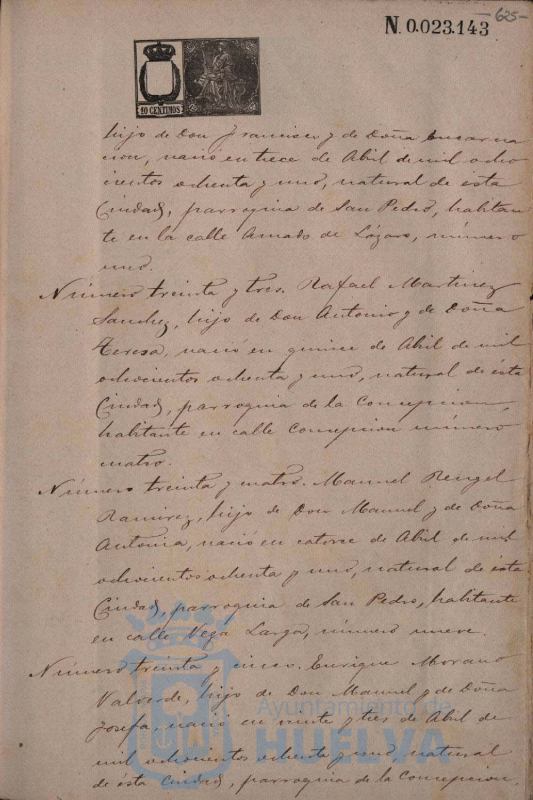 N. 0.023.143
-625-
10 CENTIMOS
hijo de Don Francisco y de Doña Encarna
cion, nació en trece de Abril de mil ocho
cientos ochenta y uno, natural de ésta
Ciudad, parroquia de San Pedro, habitan
te en la calle Amado de Lázaro, número
uno.
Número treinta y tres. Rafael Martinez
Sanchez, hijo de Don Antonio y de Doña
Teresa, nació en quince de Abril de mil
ochocientos ochenta y uno, natural de ésta
Ciudad, parroquia de la Concepcion,
habitante en calle Concepcion número
cuatro.
Número treinta y cuatro. Manuel Rengel
Ramirez, hijo de Don Manuel y de Doña
Antonia, nació en catorce de Abril de mil
ochocientos ochenta y uno, natural de ésta
Ciudad, parroquia de San Pedro, habitante
en calle Vega Larga, número nueve.
Número treinta y cinco. Enrique Morano
Valverde, hijo de Don Manuel y de Doña
Josefa, nació en veinte y tres de Abril de
mil ochocientos ochenta y uno, natural
de ésta Ciudad, parroquia de la Concepcion,
Ayuntamiento de
HUELVA